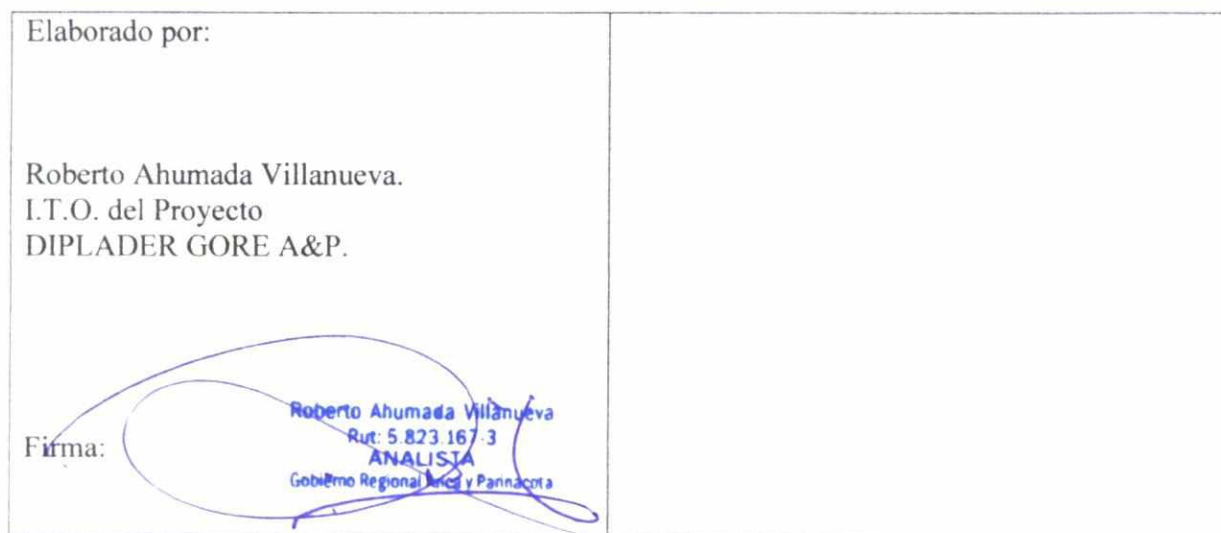 Elaborado por:
Roberto Ahumada Villanueva.
I.T.O. del Proyecto
DIPLADER GORE A&P.
Roberto Ahumada Villanueva
Rut: 5.823.167-3
ANALISTA
Gobierno Regional Arica y Parinacota
Firma: